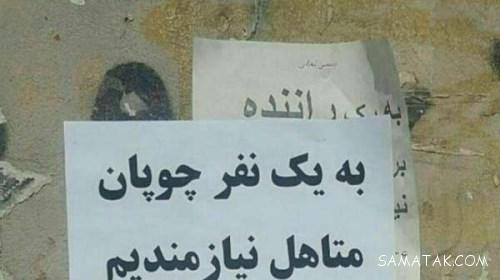 به یک راننده
به یک نفر چوپان
متاهل نیازمندیم
SAMATAK.COM